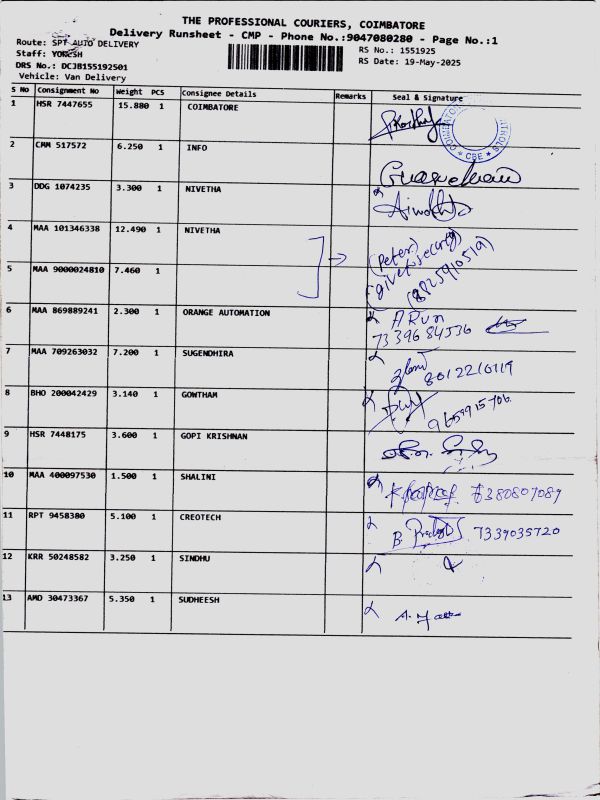 THE PROFESSIONAL COURIERS, COIMBATORE
Delivery Runsheet - CMP - Phone No.:9047080280 - Page No.:1
Route: SPT AUTO DELIVERY
Staff: YOKESH
DRS No.: DCJB155192501
Vehicle: Van Delivery
RS No.: 1551925
RS Date: 19-May-2025
S No Consignment No Weight PCS Consignee Details Remarks Seal & Signature
1 HSR 7447655 15.880 1 COIMBATORE
CBE
2 CMM 517572 6.250 1 INFO
3 DDG 1074235 3.300 1 NIVETHA
4 MAA 101346338 12.490 1 NIVETHA
(Peter)
give to security
5 MAA 9000024810 7.460 1
(8825910519)
6 MAA 869889241 2.300 1 ORANGE AUTOMATION
ARUN
7339684536
7 MAA 709263032 7.200 1 SUGENDHIRA
8012210119
8 BHO 200042429 3.140 1 GOWTHAM
9659915706
9 HSR 7448175 3.600 1 GOPI KRISHNAN
10 MAA 400097530 1.500 1 SHALINI
6380807089
11 RPT 9458380 5.100 1 CREOTECH
7339035720
12 KRR 50248582 3.250 1 SINDHU
13 AMD 30473367 5.350 1 SUDHEESH